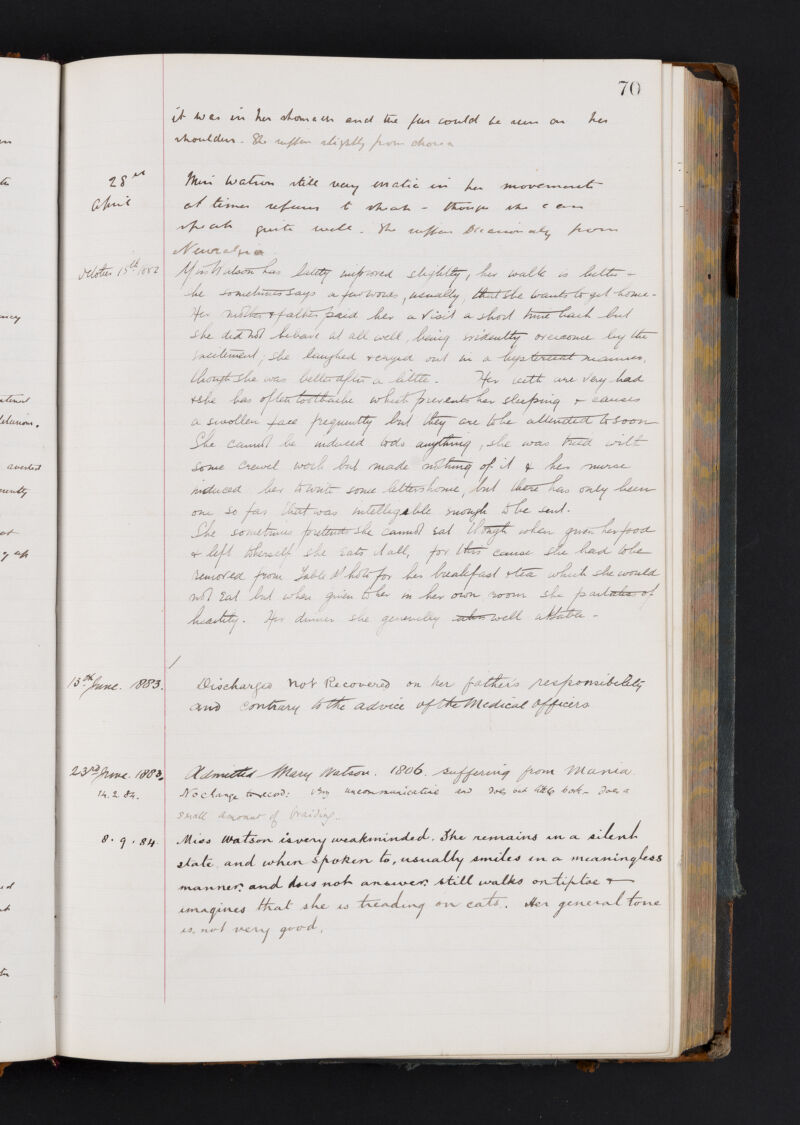 70
it was in her stomach and the fur could be seen on her
shoulders. She suffers slightly from chorea
28th April
Miss Watson still very erratic in her movements
at times refuses to speak - though she can
speak quite well. She suffers occasionally from
Neuralgia
October 15th 1882
Miss Watson has lately improved slightly, her walk is better -
she sometimes says a few words, usually, that she wants to get home -
Her mother & father paid her a visit a short time back but
she did not behave at all well, being evidently overcome by the
excitement; she laughed & cryed out in a hysterical manner,
though she was better after a little. Her teeth are very bad
& she has often toothache which prevents her sleeping & causes
a swollen face frequently but they are to be attended to soon
She cannot be induced to do anything, she was tried with
some crewel work but made nothing of it & her nurse
induced her to write some letters home, but there has only been
one so far that was intellegable enough to be sent.
She sometimes pretends she cannot eat though when given her food
& left to herself she eats it all, for this cause she had to be
removed from Table d'hôte for her breakfast & tea which she would
not eat but when given to her in her own room she partakes of
heartily. Her dinner she generally well at table -
13th June. 1883.
Discharged Not Recovered on her father's responsibility
and contrary to the advice of the Medical Officers
23rd June. 1883.
Admitted Mary Watson. 1806. suffering from Mania.
14.2.84.
No change to record: very uncommunicative and does but little work - Does a
small amount of braiding.
8.9.84
Miss Watson is very weakminded. She remains in a silent
state and when spoken to, usually smiles in a meaningless
manner, and does not answer. Still walks on tiptoe &
imagines that she is treading on cats. Her general tone
is not very good.